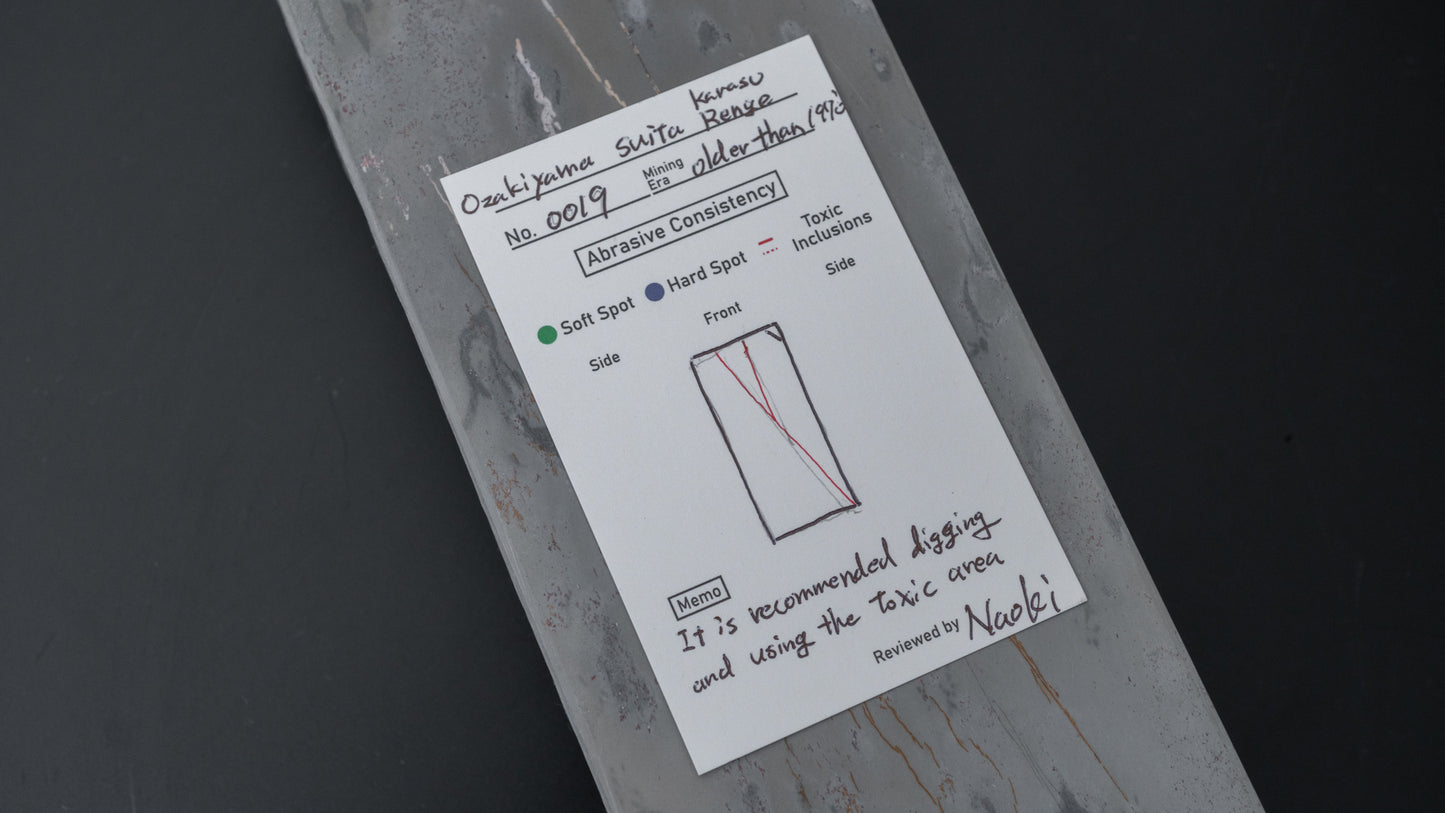 Ozakiyama Suita Karasu
Renge
No. 0019 Mining Era older than
Abrasive Consistency
Soft Spot Hard Spot Toxic Inclusions
Side Front Side
Memo
It is recommended digging
and using the toxic area
Reviewed by Naoki